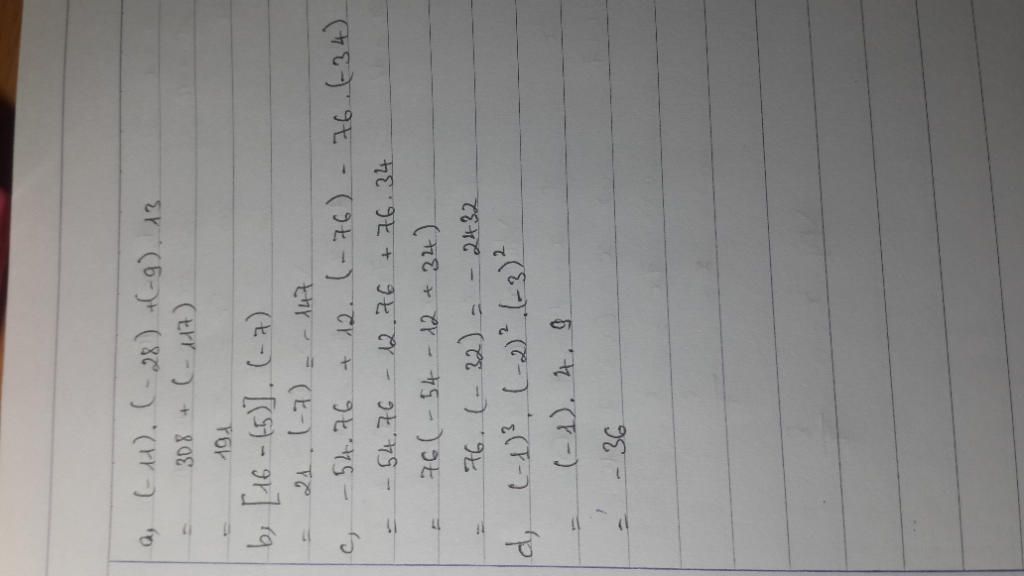 a, (-11).(-28)+(-9).13
= 308 + (-117)
= 191
b, [16-(5)].(-7)
= 21.(-7) = -147
c, -54.76 + 12.(-76) - 76.(-34)
= -54.76 - 12.76 + 76.34
= 76(-54-12+34)
= 76.(-32) = -2432
d, (-1)³.(-2)².(-3)²
= (-1).4.9
= -36